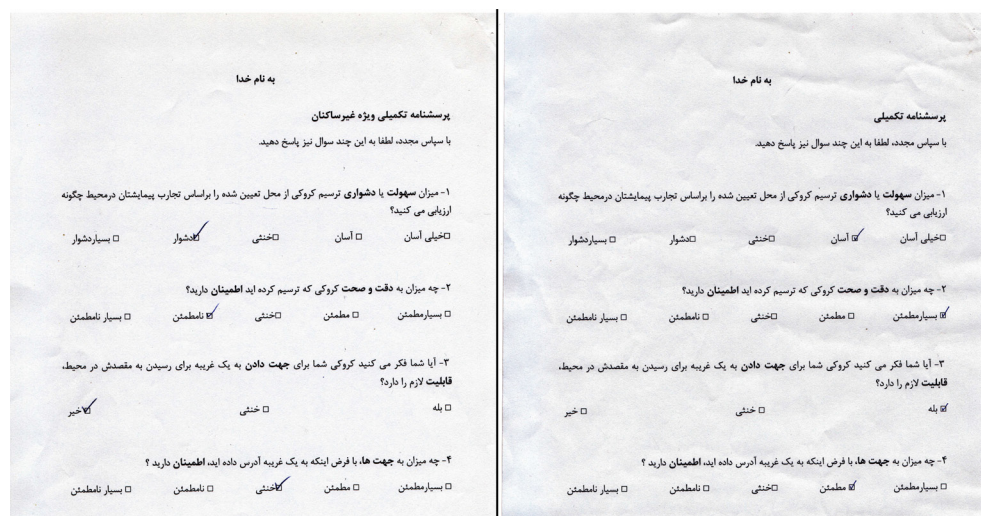 به نام خدا
پرسشنامه تکمیلی ویژه غیرساکنان
با سپاس مجدد، لطفا به این چند سوال نیز پاسخ دهید.
۱- میزان سهولت یا دشواری ترسیم کروکی از محل تعیین شده را براساس تجارب پیمایشتان درمحیط چگونه
ارزیابی می کنید؟
□خیلی آسان □ آسان □خنثی ☑دشوار □ بسیاردشوار
۲- چه میزان به دقت و صحت کروکی که ترسیم کرده اید اطمینان دارید؟
□ بسیارمطمئن □ مطمئن □خنثی ☑ نامطمئن □ بسیار نامطمئن
۳- آیا شما فکر می کنید کروکی شما برای جهت دادن به یک غریبه برای رسیدن به مقصدش در محیط،
قابلیت لازم را دارد؟
□ بله □ خنثی ☑ خیر
۴- چه میزان به جهت ها، با فرض اینکه به یک غریبه آدرس داده اید، اطمینان دارید ؟
□ بسیارمطمئن □ مطمئن ☑خنثی □ نامطمئن □ بسیار نامطمئن
به نام خدا
پرسشنامه تکمیلی
با سپاس مجدد، لطفا به این چند سوال نیز پاسخ دهید.
۱- میزان سهولت یا دشواری ترسیم کروکی از محل تعیین شده را براساس تجارب پیمایشتان درمحیط چگونه
ارزیابی می کنید؟
□خیلی آسان ☑ آسان □خنثی □دشوار □ بسیاردشوار
۲- چه میزان به دقت و صحت کروکی که ترسیم کرده اید اطمینان دارید؟
☑ بسیارمطمئن □ مطمئن □خنثی □ نامطمئن □ بسیار نامطمئن
۳- آیا شما فکر می کنید کروکی شما برای جهت دادن به یک غریبه برای رسیدن به مقصدش در محیط،
قابلیت لازم را دارد؟
☑ بله □ خنثی □ خیر
۴- چه میزان به جهت ها، با فرض اینکه به یک غریبه آدرس داده اید، اطمینان دارید ؟
□ بسیارمطمئن ☑ مطمئن □خنثی □ نامطمئن □ بسیار نامطمئن